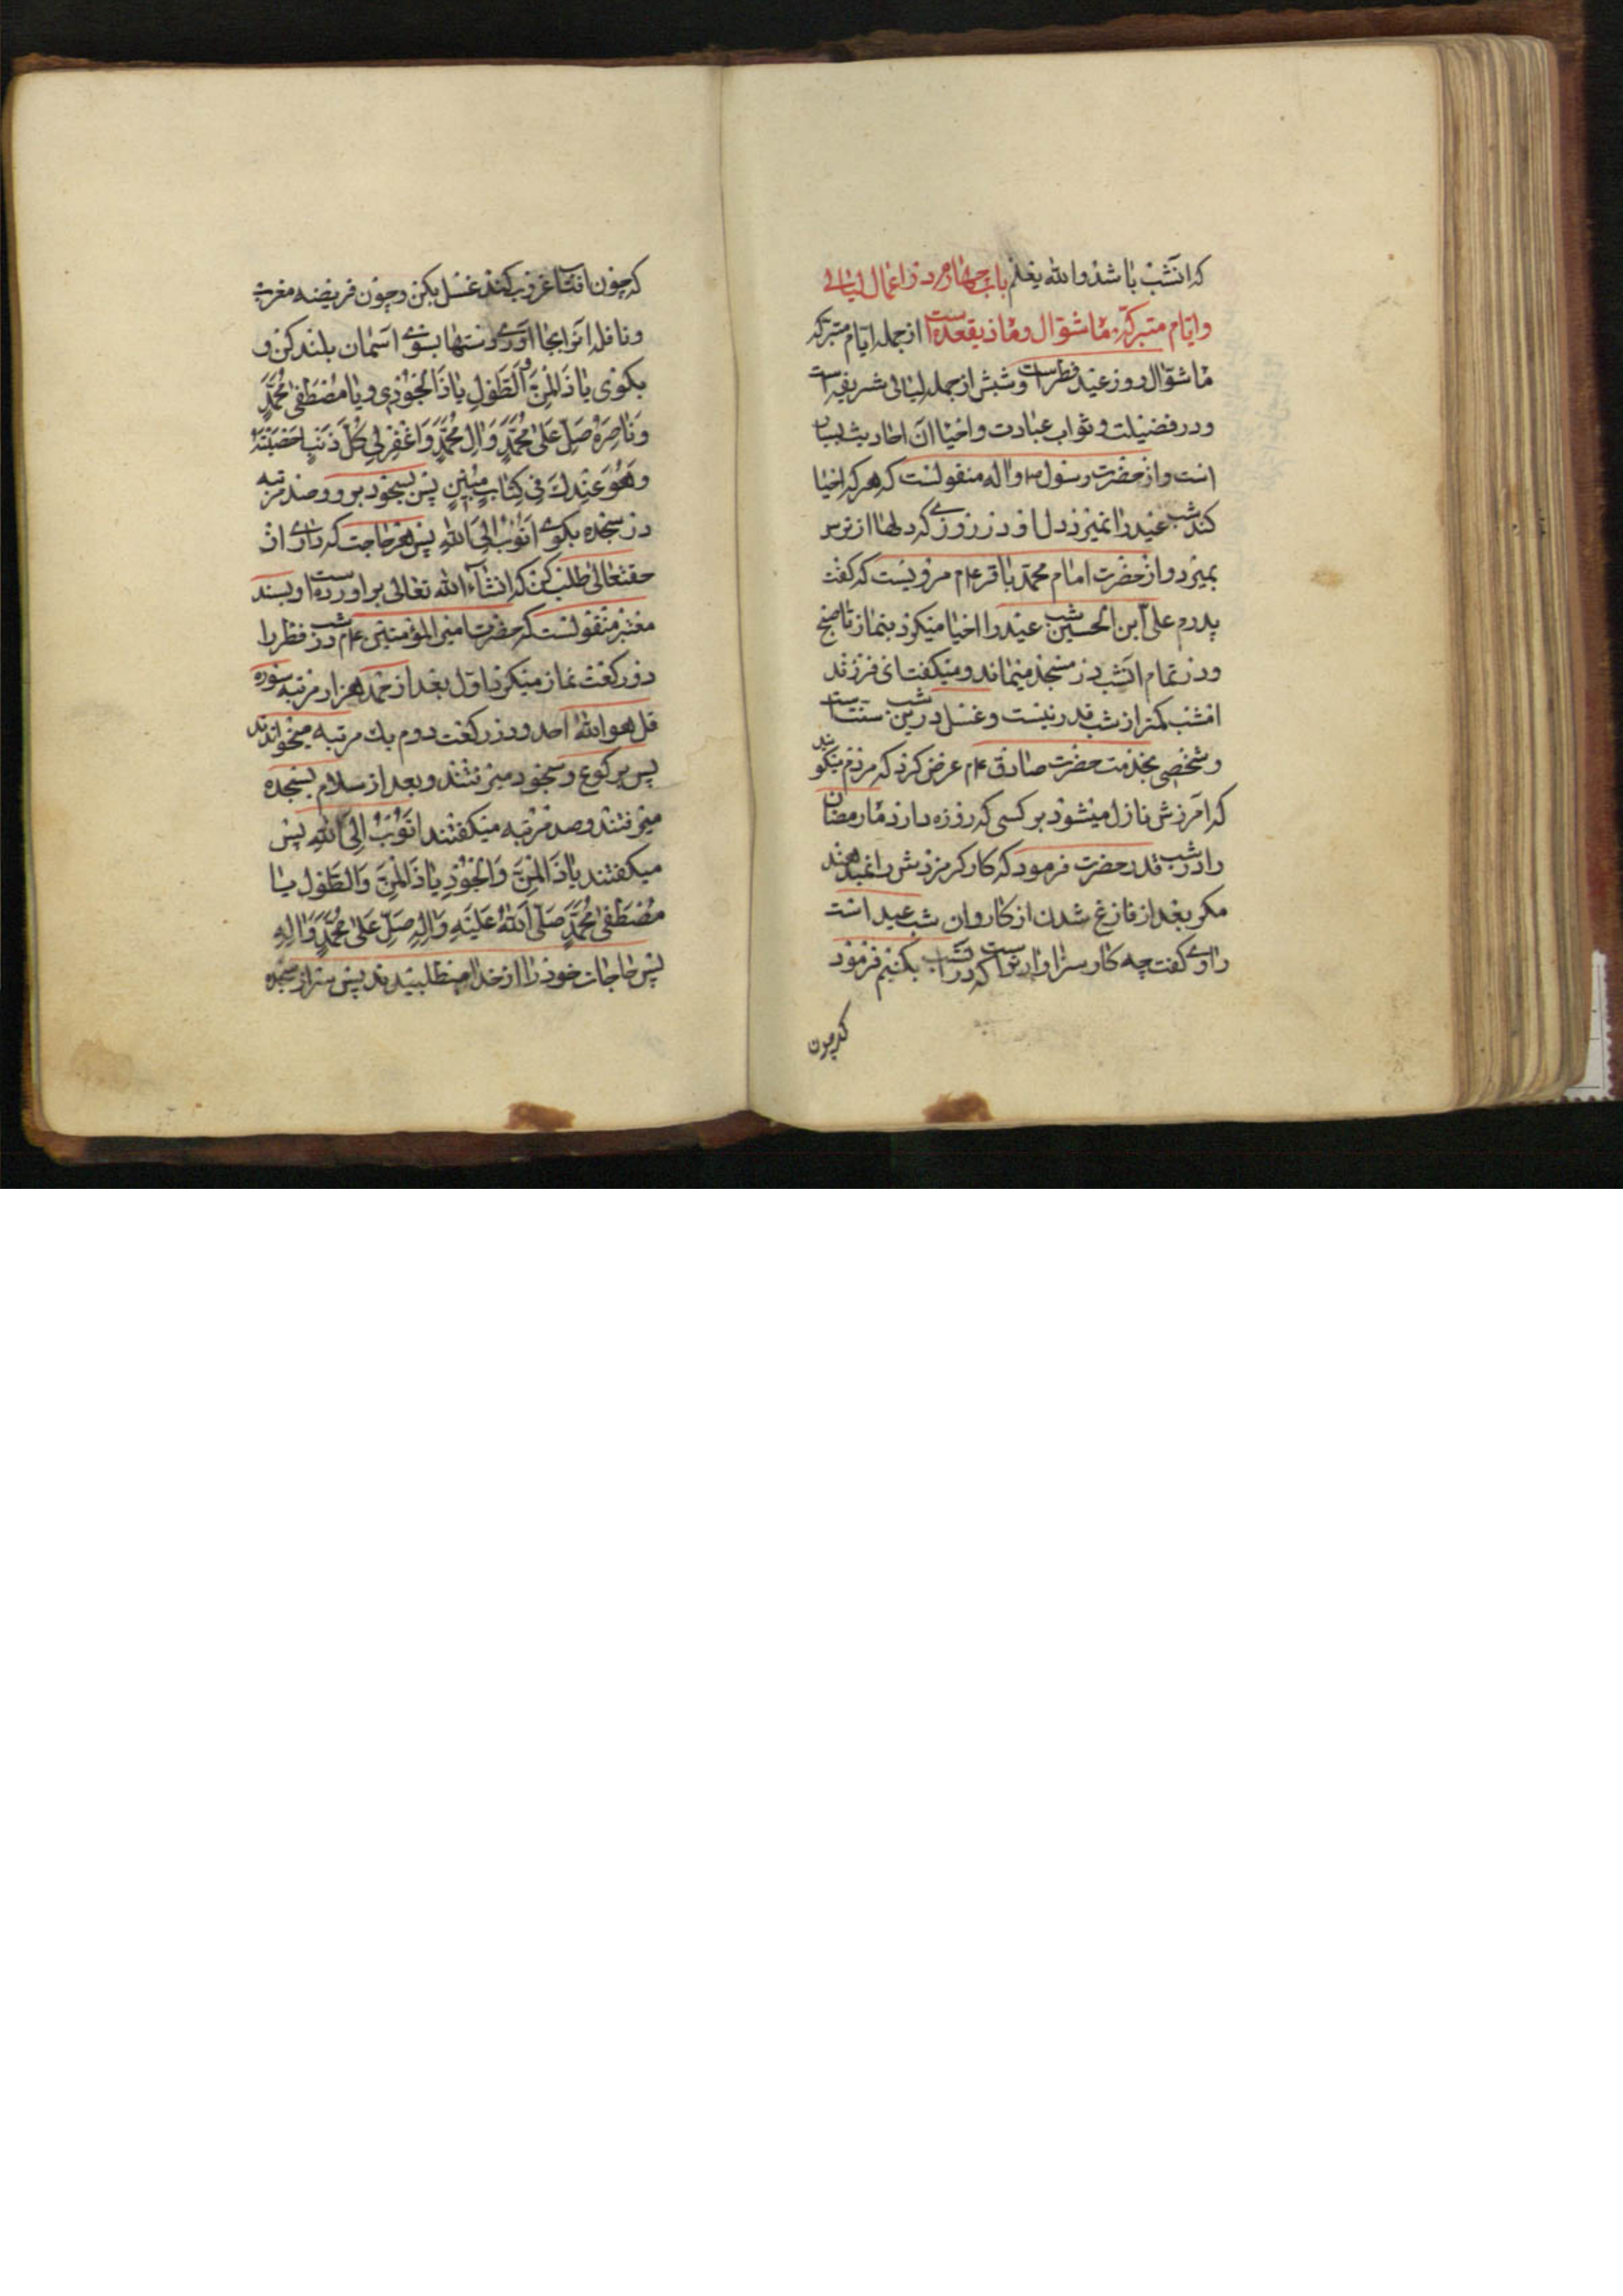 که آنشب باشد والله یعلم باب چهارم در ذکر اعمال لیالی
وایام متبرکه ماه شوال وماه ذیقعده است از جمله ایام متبرکه
ماه شوال روز عید فطر است وشبش از جمله لیالی شریفه است
ودر فضیلت وثواب عبادت واحیا آن احادیث بسیار
است واز حضرت رسول ص واله منقولست که هر که احیا
کند شب عید را نمیرد دل او در روزی که دلها از ترس
بمیرد واز حضرت امام محمد باقر علم مرویست که گفت
پدرم علی ابن الحسین شب عید را احیا میکرد بنماز تا صبح
ودر تمام آنشب در مسجد میماند ومیگفت ای فرزند
امشب کمتر از شب قدر نیست وغسل درین شب سنت است
وشخصی بخدمت حضرت صادق علم عرض کرد که مردم میگویند
که امرزش نازل میشود بر کسی که روزه دارد ماه رمضان
را در شب قدر حضرت فرمود که کارکر مزدش را نمیدهند
مگر بعد از فارغ شدن از کار وان شب عید است
راوی گفت چه کار سزاوار است که در آنشب بکنیم فرمود
که چون
که چون افتاب غروب کند غسل بکن وچون فریضه مغرب
ونافله انرا بجا اوری دستها بسوی اسمان بلند کن و
بگوی یا ذا المن والطول یا ذا الجود ویا مصطفی محمد
وناصره صل علی محمد وال محمد واغفر لی کل ذنب احصیته
وهو عندک فی کتاب مبین پس بسجود برو وصد مرتبه
در سجده بگوی اتوب الی الله پس هر حاجت که داری از
حقتعالی طلب کن که انشاء الله تعالی براورده است وبسند
معتبر منقولست که حضرت امیر المؤمنین علم در شب فطر را
دو رکعت نماز میکرد اول بعد از حمد هزار مرتبه سوره
قل هو الله احد ودر رکعت دوم یک مرتبه میخواندند
پس برکوع وسجود میرفتند وبعد از سلام بسجده
میرفتند وصد مرتبه میگفتند اتوب الی الله پس
میگفتند یا ذا المن والجود یا ذا المن والطول یا
مصطفی محمد صلی الله علیه واله صل علی محمد واله
پس حاجات خود را از خدا میطلبیدند پس سر از سجده